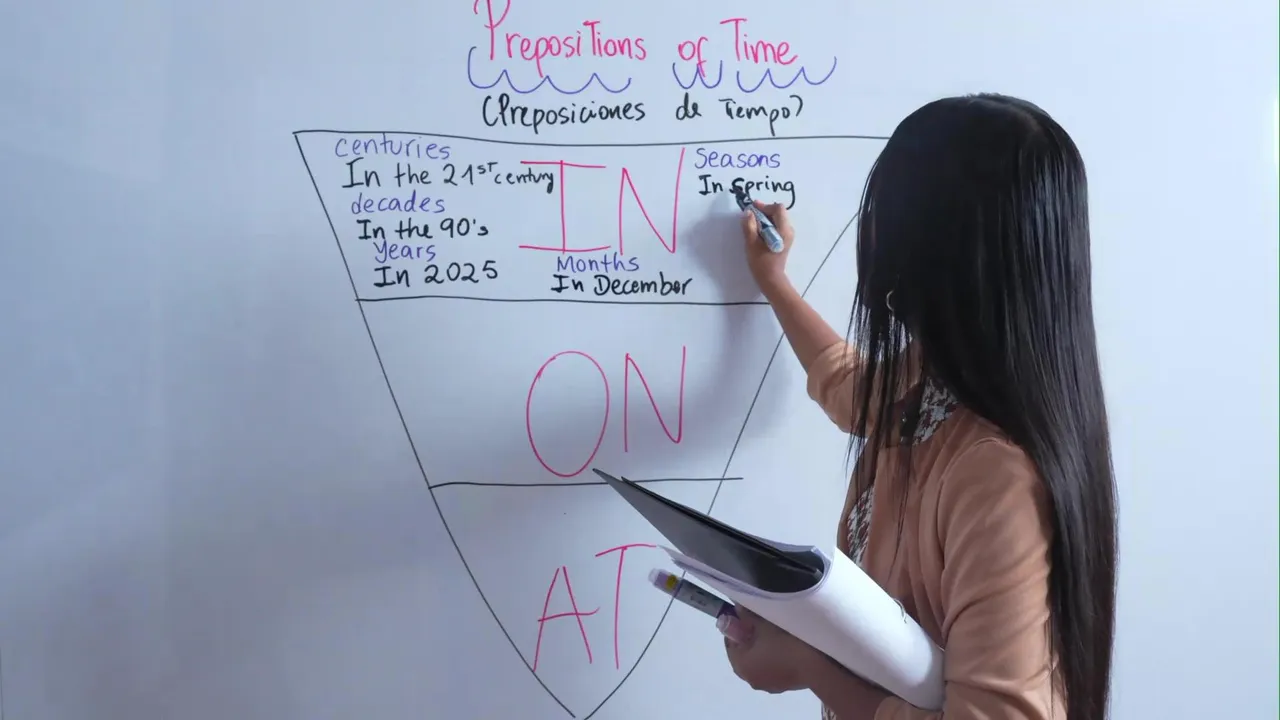 Prepositions of Time
(Preposiciones de Tiempo)
centuries
In the 21ST century
decades
In the 90's
Years
In 2025
IN
Months
In December
Seasons
In Spring
ON
AT